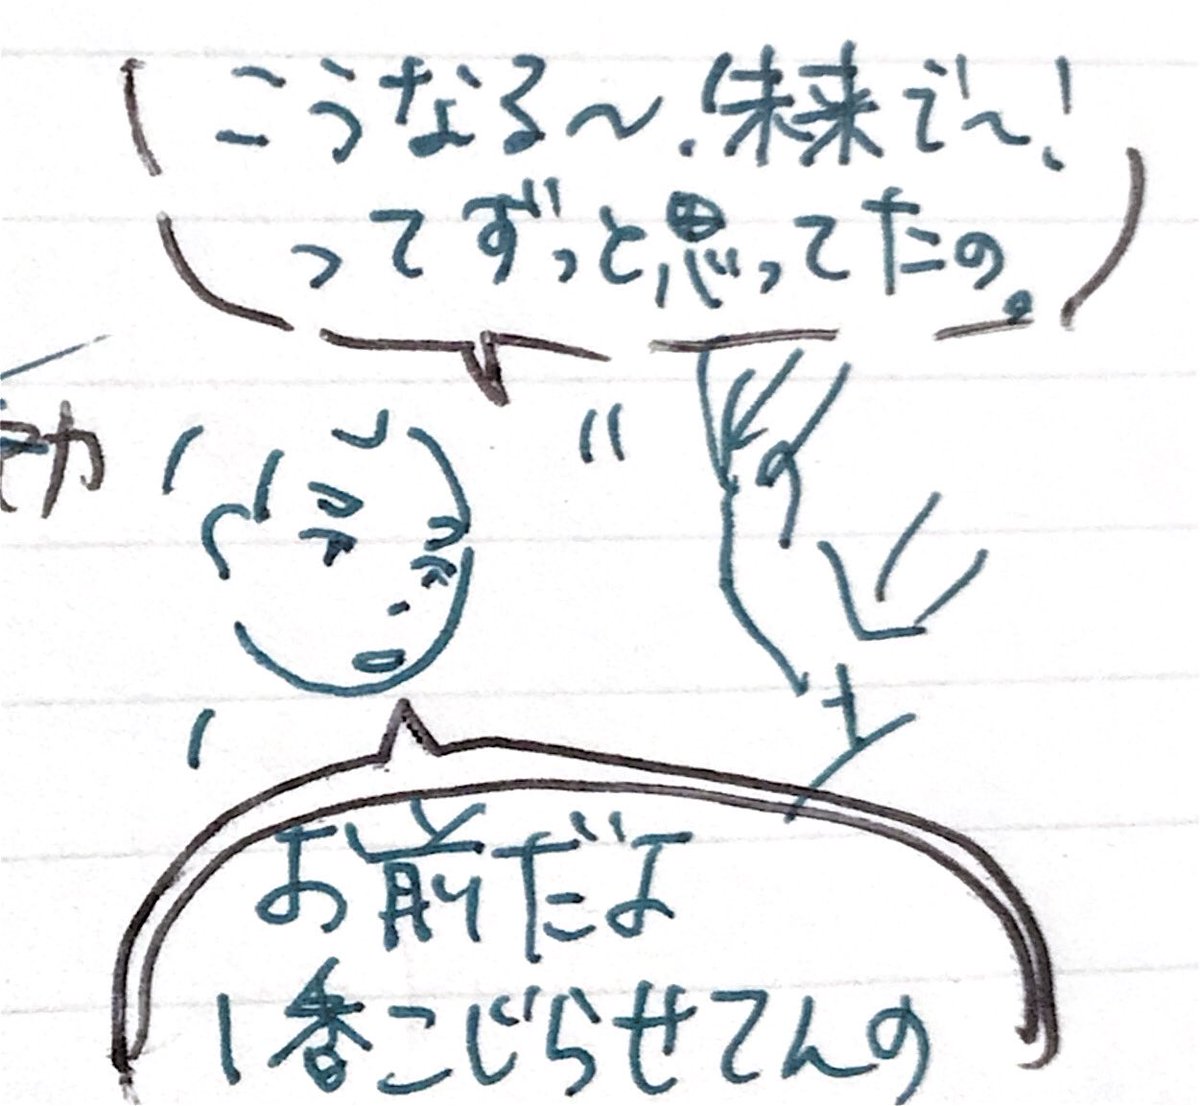 こうなる〜!未来で〜!
ってずっと思ってたの。
お前だよ
1番こじらせてんの